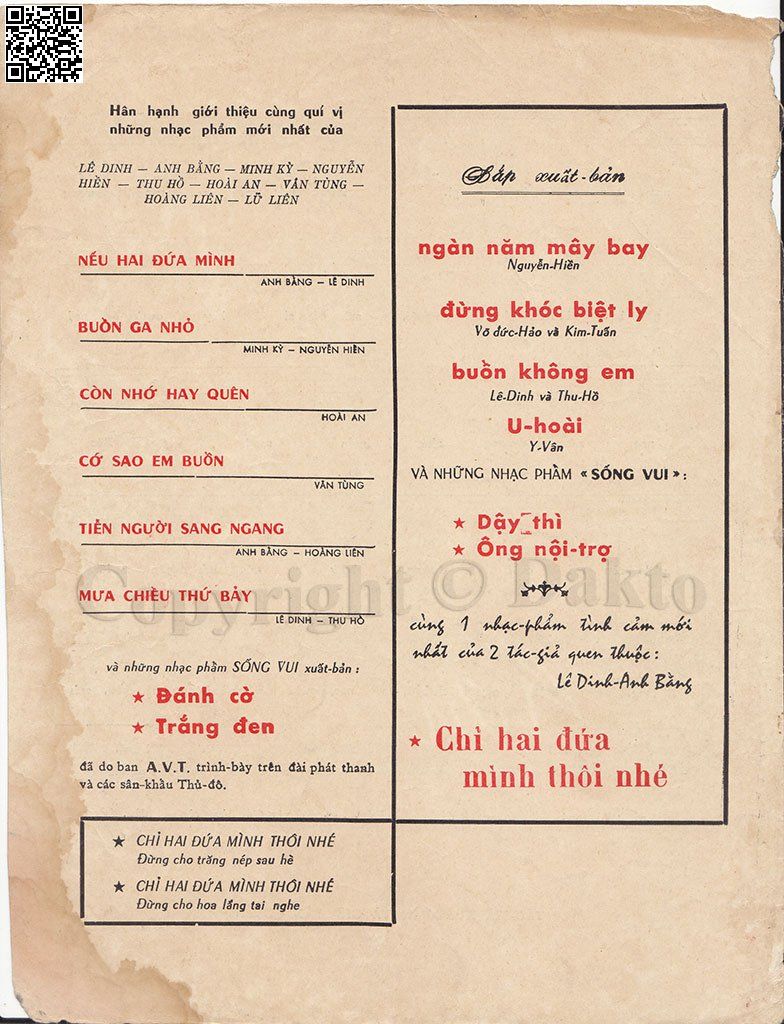 Hân hạnh giới thiệu cùng quí vị
những nhạc phẩm mới nhất của
LÊ DINH — ANH BẰNG — MINH KỲ — NGUYỄN
HIỀN — THU HỒ — HOÀI AN — VĂN TÙNG —
HOÀNG LIÊN — LỮ LIÊN
NẾU HAI ĐỨA MÌNH
ANH BẰNG – LÊ DINH
BUỒN GA NHỎ
MINH KỲ – NGUYỄN HIỀN
CÒN NHỚ HAY QUÊN
HOÀI AN
CỚ SAO EM BUỒN
VĂN TÙNG
TIỄN NGƯỜI SANG NGANG
ANH BẰNG – HOÀNG LIÊN
MƯA CHIỀU THỨ BẢY
LÊ DINH – THU HỒ
và những nhạc phẩm SỐNG VUI xuất-bản :
★ Đánh cờ
★ Trắng đen
đã do ban A.V.T. trình-bày trên đài phát thanh
và các sân-khấu Thủ-đô.
★ CHỈ HAI ĐỨA MÌNH THÔI NHÉ
Đừng cho trăng nép sau hè
★ CHỈ HAI ĐỨA MÌNH THÔI NHÉ
Đừng cho hoa lắng tai nghe
Sắp xuất-bản
ngàn năm mây bay
Nguyễn-Hiền
đừng khóc biệt ly
Võ đức-Hảo và Kim-Tuấn
buồn không em
Lê-Dinh và Thu-Hồ
U-hoài
Y-Vân
VÀ NHỮNG NHẠC PHẨM « SỐNG VUI » :
★ Dậy thì
★ Ông nội-trợ
cùng 1 nhạc-phẩm tình cảm mới
nhất của 2 tác-giả quen thuộc :
Lê Dinh-Anh Bằng
★ Chỉ hai đứa
mình thôi nhé
Copyright © Dakto